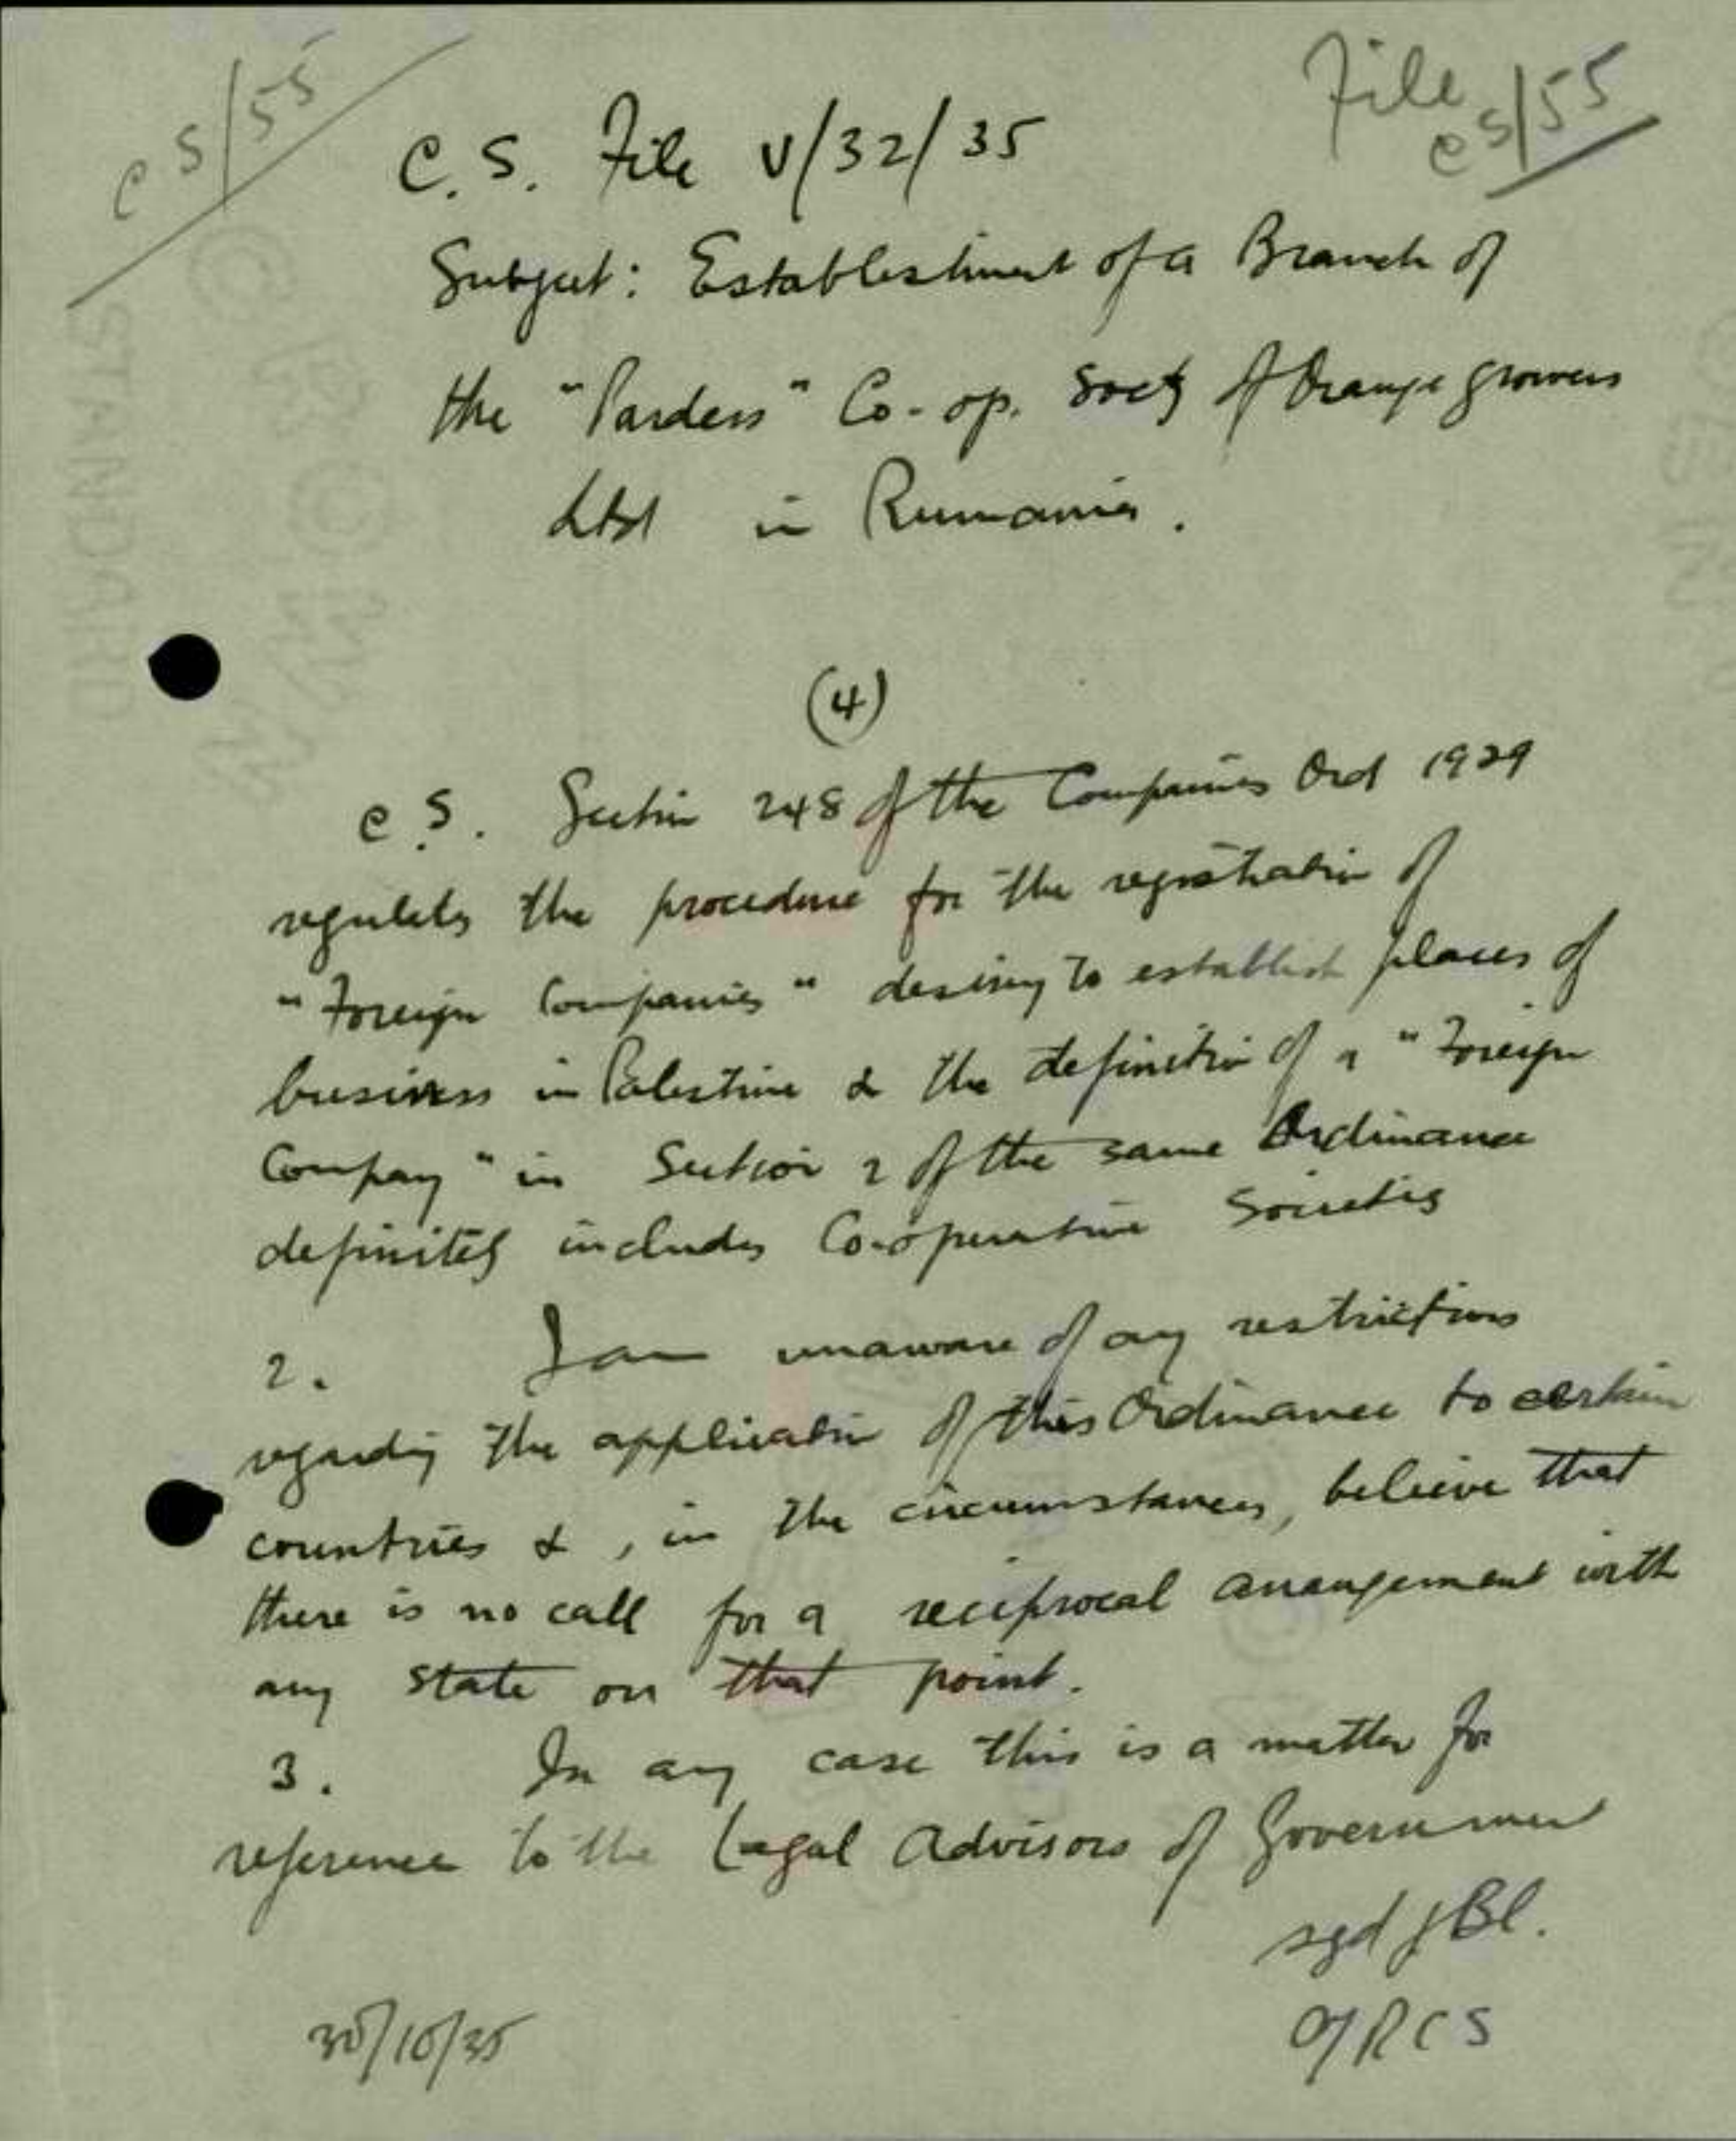 CS/55
File
CS/55
C.S. File V/32/35
Subject: Establishment of a Branch of
the "Pardess" Co-op. Socy of Orange growers
Ltd in Rumania.
(4)
C.S. Section 248 of the Companies Ord 1929
regulates the procedure for the registration of
"Foreign Companies" desiring to establish places of
business in Palestine & the definition of a "Foreign
Company" in Section 2 of the same Ordinance
definitely includes Co-operative Societies
2. I am unaware of any restrictions
regarding the application of this Ordinance to certain
countries &, in the circumstances, believe that
there is no call for a reciprocal arrangement with
any state on that point.
3. In any case this is a matter for
reference to the Legal Advisors of Government
sgd JBL.
30/10/35
RCS
STANDARD